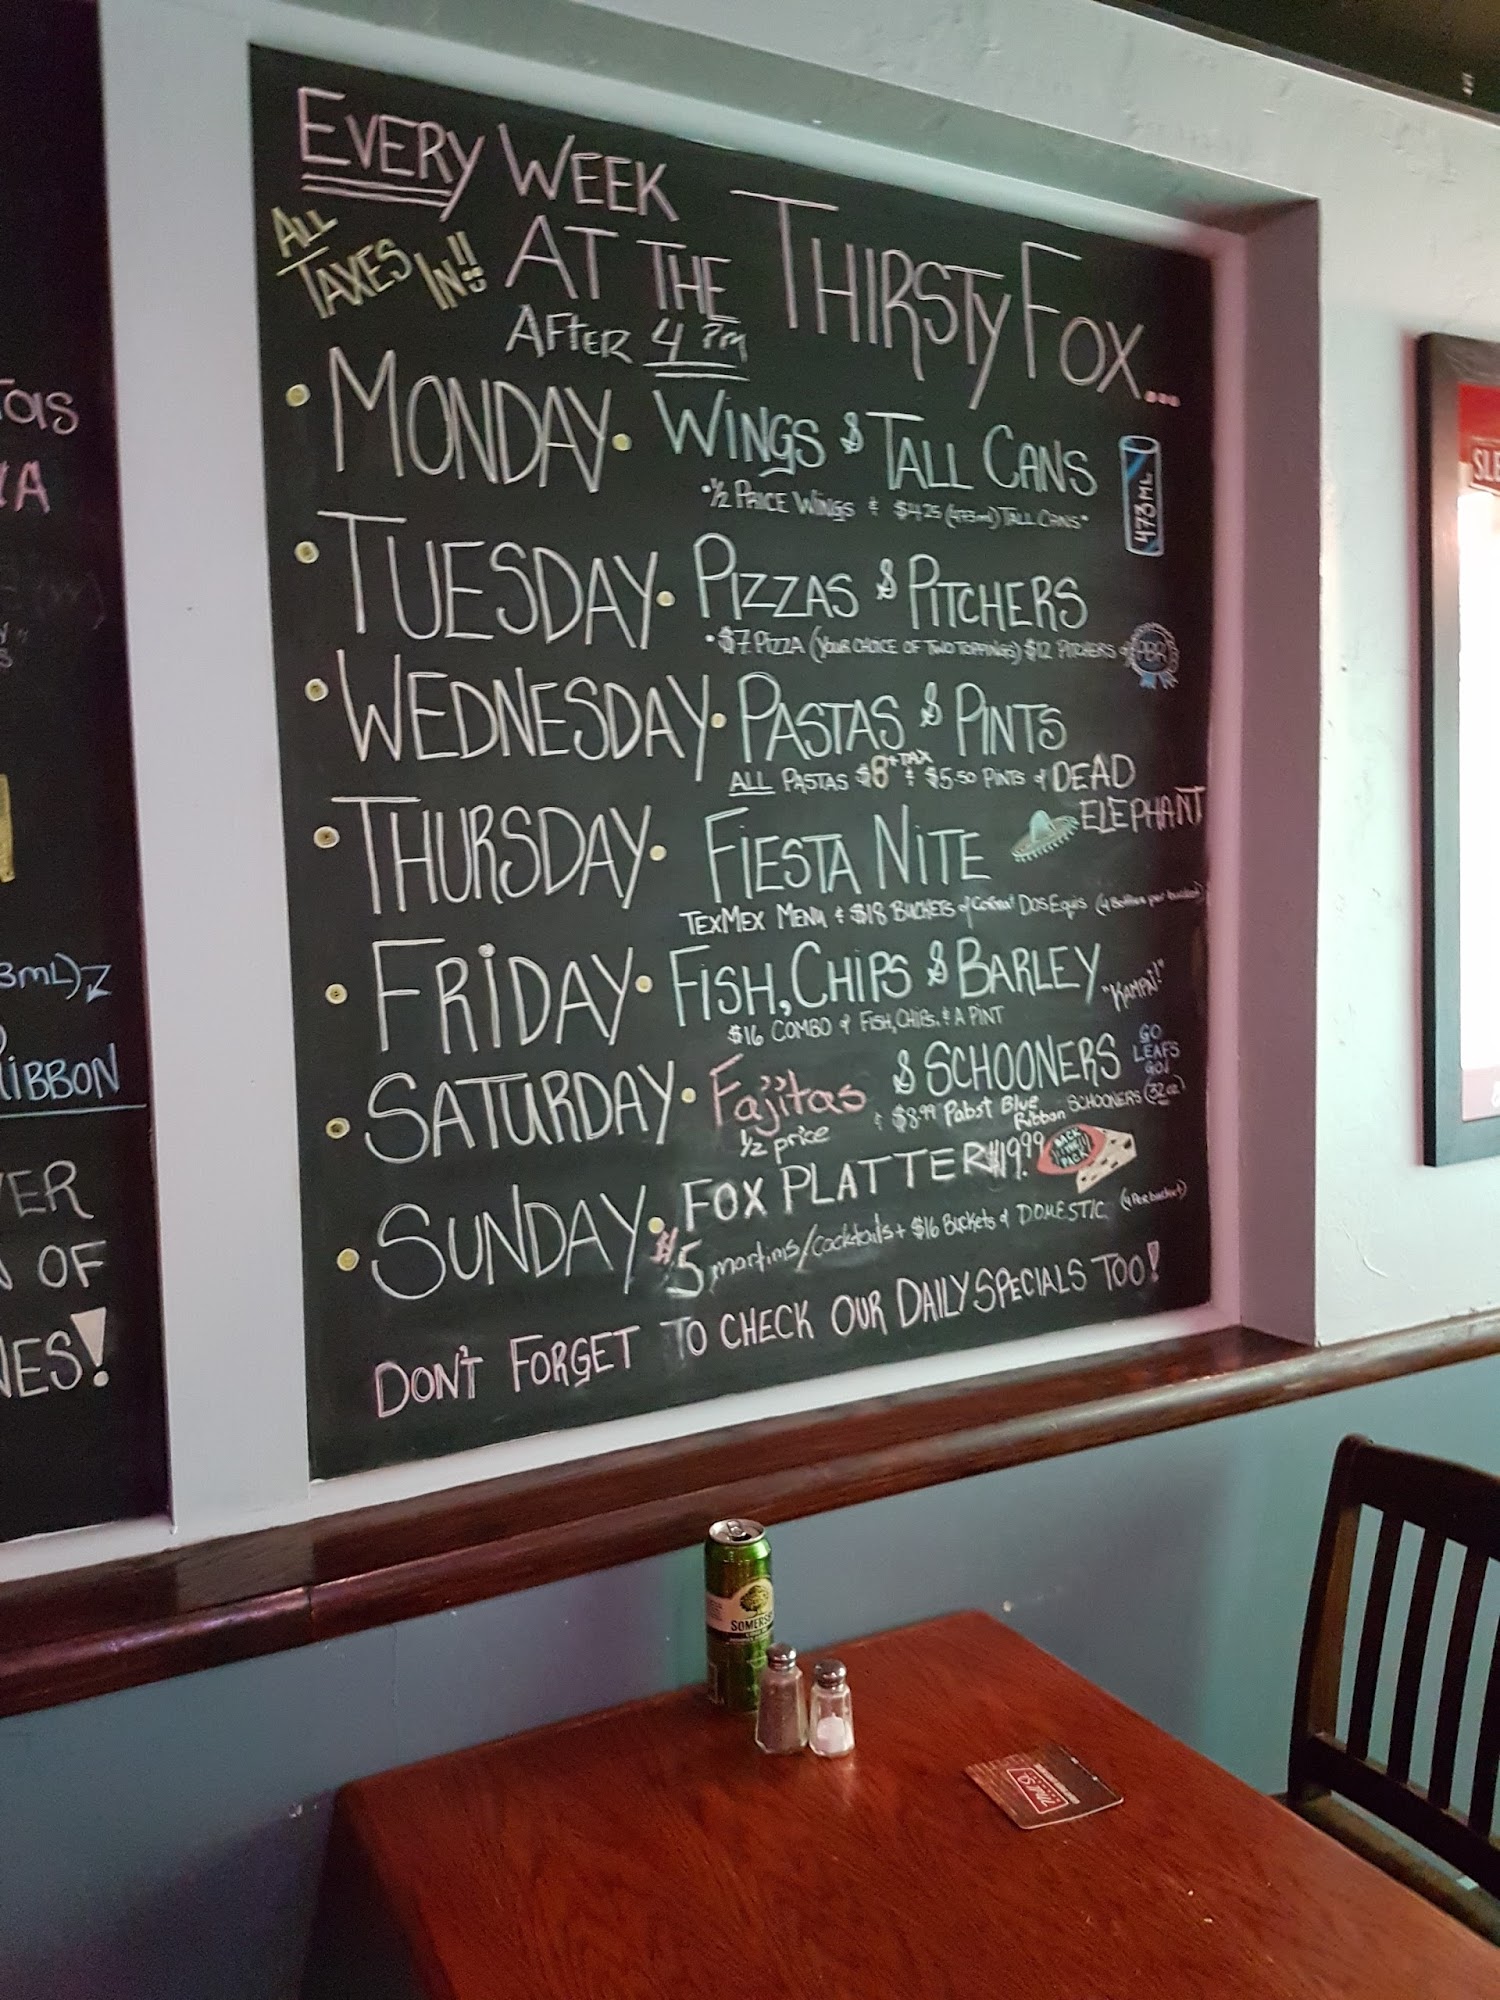 EVERY WEEK
AT THE THIRSTY FOX...
ALL
TAXES IN!!
AFTER 4 PM
• MONDAY • WINGS & TALL CANS
• ½ PRICE WINGS & $4.25 (473ml) TALL CANS"
473ML
• TUESDAY • PIZZAS & PITCHERS
• $7 PIZZA (YOUR CHOICE OF TWO TOPPINGS) $12 PITCHERS of PBR
• WEDNESDAY • PASTAS & PINTS
ALL PASTAS $8 + TAX & $5.50 PINTS of DEAD
ELEPHANT
• THURSDAY • FIESTA NITE
TEXMEX MENU & $18 BUCKETS of DOS EQUIS (4 Bottles per bucket)
• FRIDAY • FISH, CHIPS & BARLEY
"KAMPAI!"
$16 COMBO of FISH, CHIPS, & A PINT
• SATURDAY • Fajitas & SCHOONERS
GO
LEAFS
GO!
½ price & $8.99 Pabst Blue Ribbon SCHOONERS (32oz)
• SUNDAY • FOX PLATTER $19.99
BACK
THE
PACK
$5 martinis/cocktails + $16 Buckets of DOMESTIC (4 Per bucket)
DON'T FORGET TO CHECK OUR DAILY SPECIALS TOO!
Tas
3mL)
RIBBON
VER
OF
NES!
SOMERS
Mill St